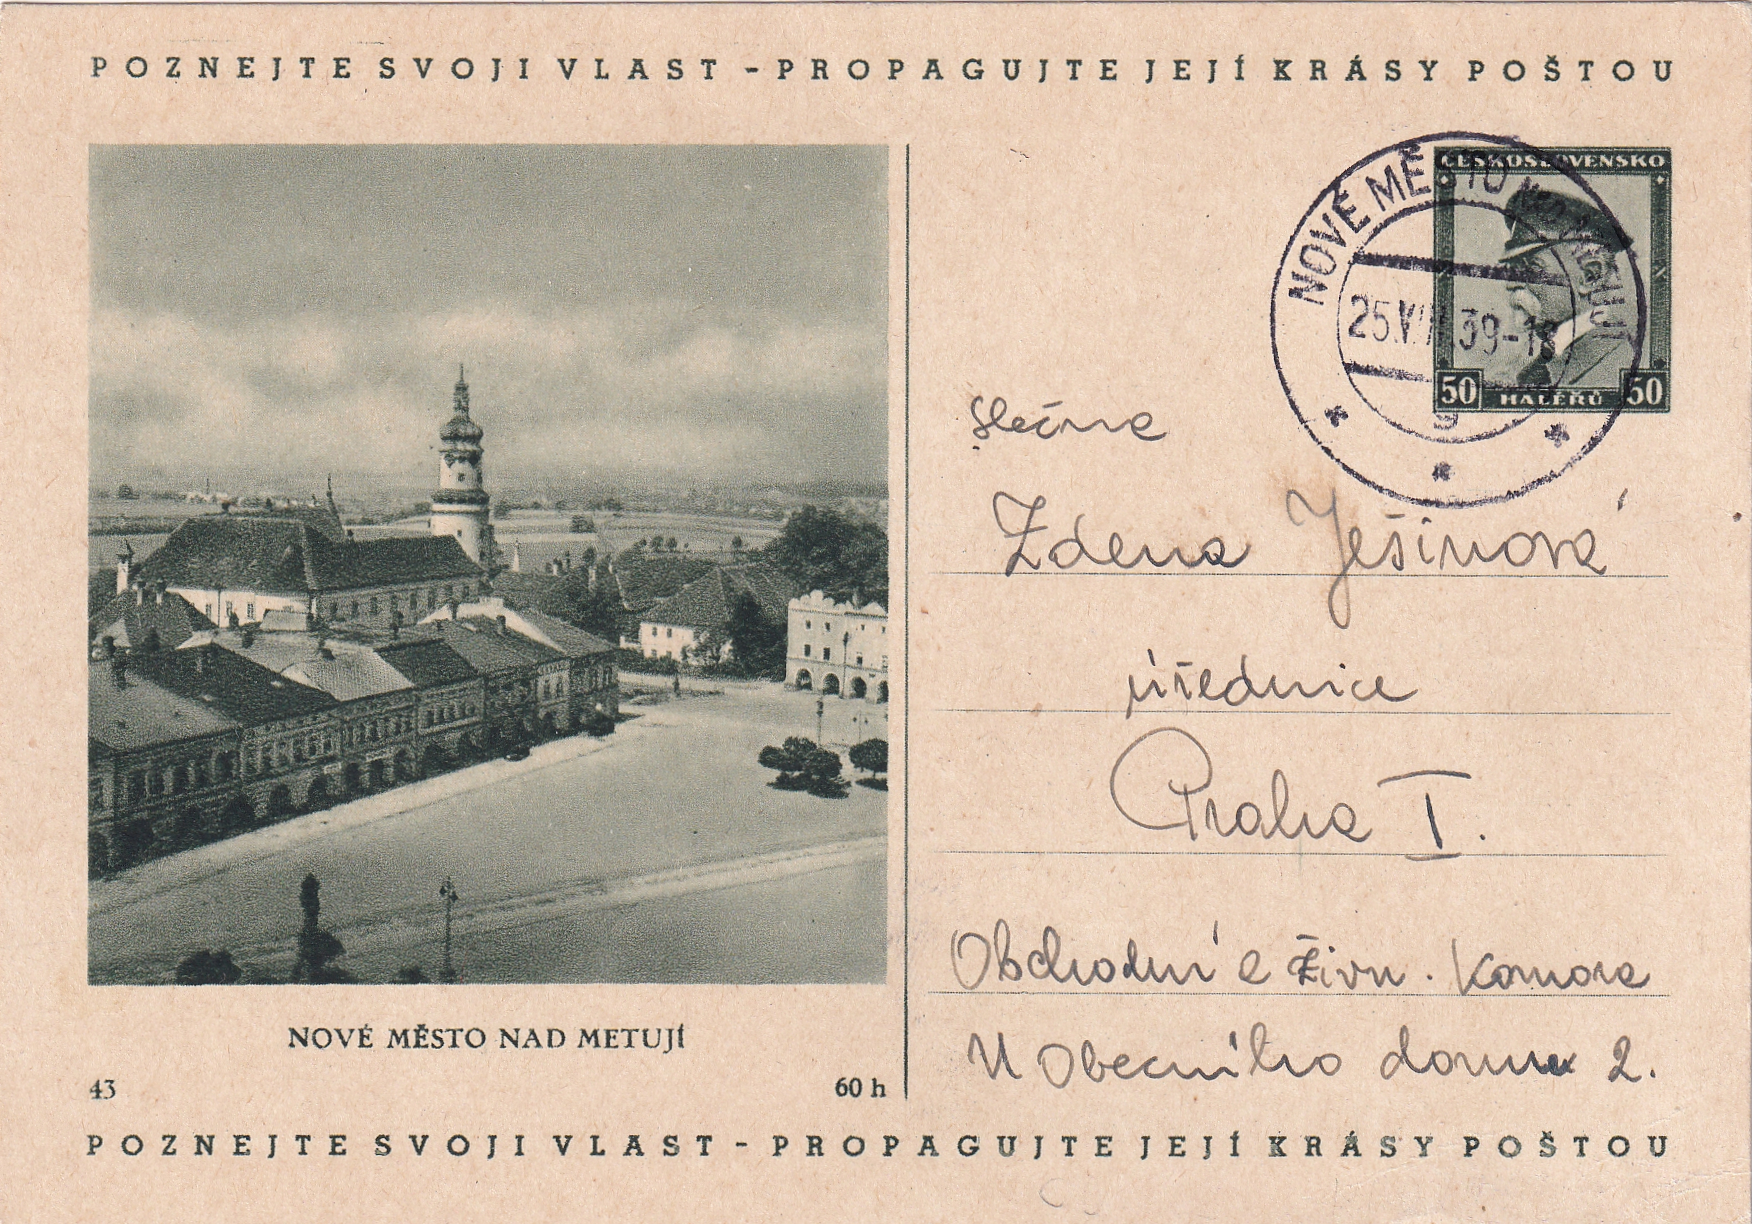 POZNEJTE SVOJI VLAST - PROPAGUJTE JEJÍ KRÁSY POŠTOU
ČESKOSLOVENSKO
NOVÉ MĚSTO NAD METUJÍ
25.VIII.39-18
g
50 HALÉŘŮ 50
slečna
Zdena Ješinová
úřednice
Praha I.
Obchodní a Živn. Komora
U Obecního domu 2.
NOVÉ MĚSTO NAD METUJÍ
43 60 h
POZNEJTE SVOJI VLAST - PROPAGUJTE JEJÍ KRÁSY POŠTOU